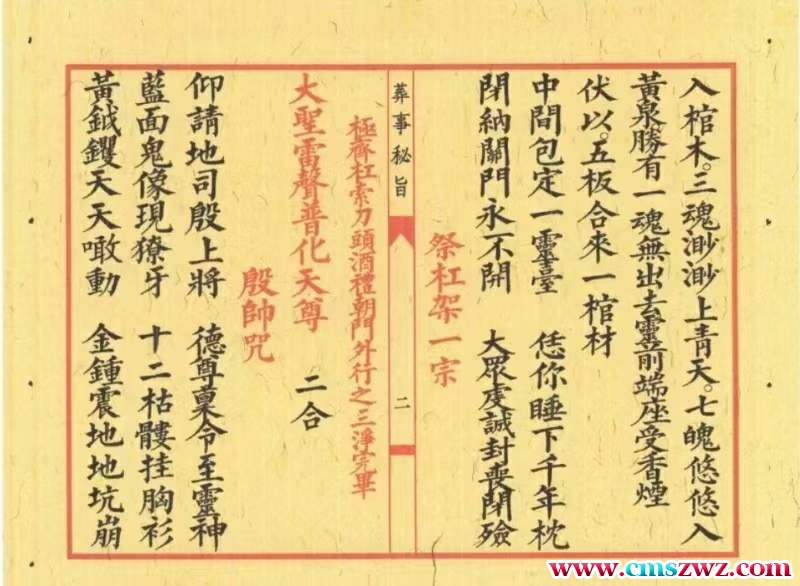 入棺木。三魂渺渺上青天。七魄悠悠入
黃泉勝有一魂無出去靈前端座受香煙
伏以。五板合來一棺材
中間包定一靈臺 恁你睡下千年枕
閉納關門永不開 大眾虔誠封喪閉殮
祭杠架一宗
葬事秘旨 二
極齊杠索刀頭酒禮朝門外行之三淨完畢
大聖雷聲普化天尊 二合
殷帥咒
仰請地司殷上將 德尊稟令至靈神
藍面鬼像現獠牙 十二枯髏挂胸衫
黃鉞钁天天噉動 金鍾震地地坑崩
www.cmszwz.com